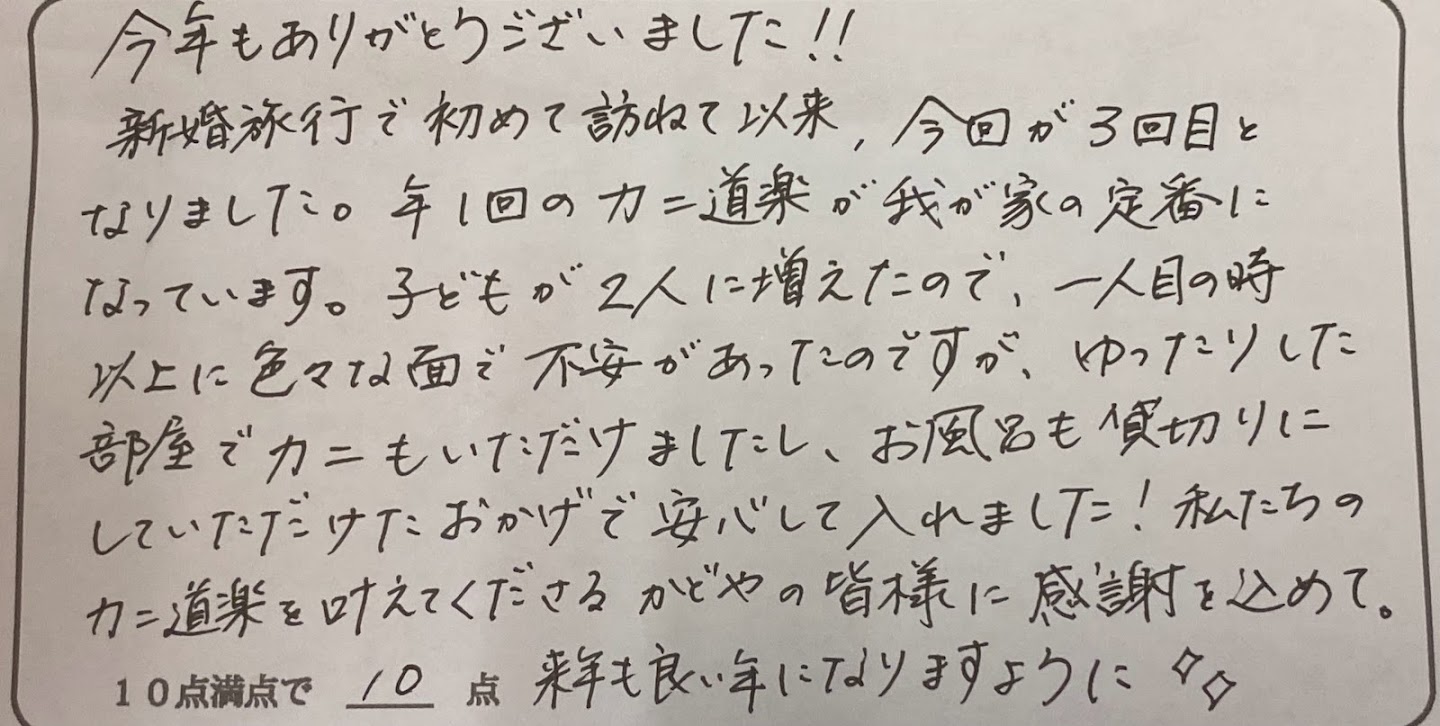 今年もありがとうございました!!
新婚旅行で初めて訪ねて以来、今回が3回目と
なりました。年1回のカニ道楽が我が家の定番に
なっています。子どもが2人に増えたので、一人目の時
以上に色々な面で不安があったのですが、ゆったりした
部屋でカニもいただけましたし、お風呂も貸切りに
していただけたおかげで安心して入れました!私たちの
カニ道楽を叶えてくださるかどやの皆様に感謝を込めて。
10点満点で 10 点 来年も良い年になりますように